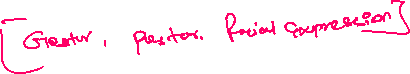 [Gestur, Postor, Facial Expression]